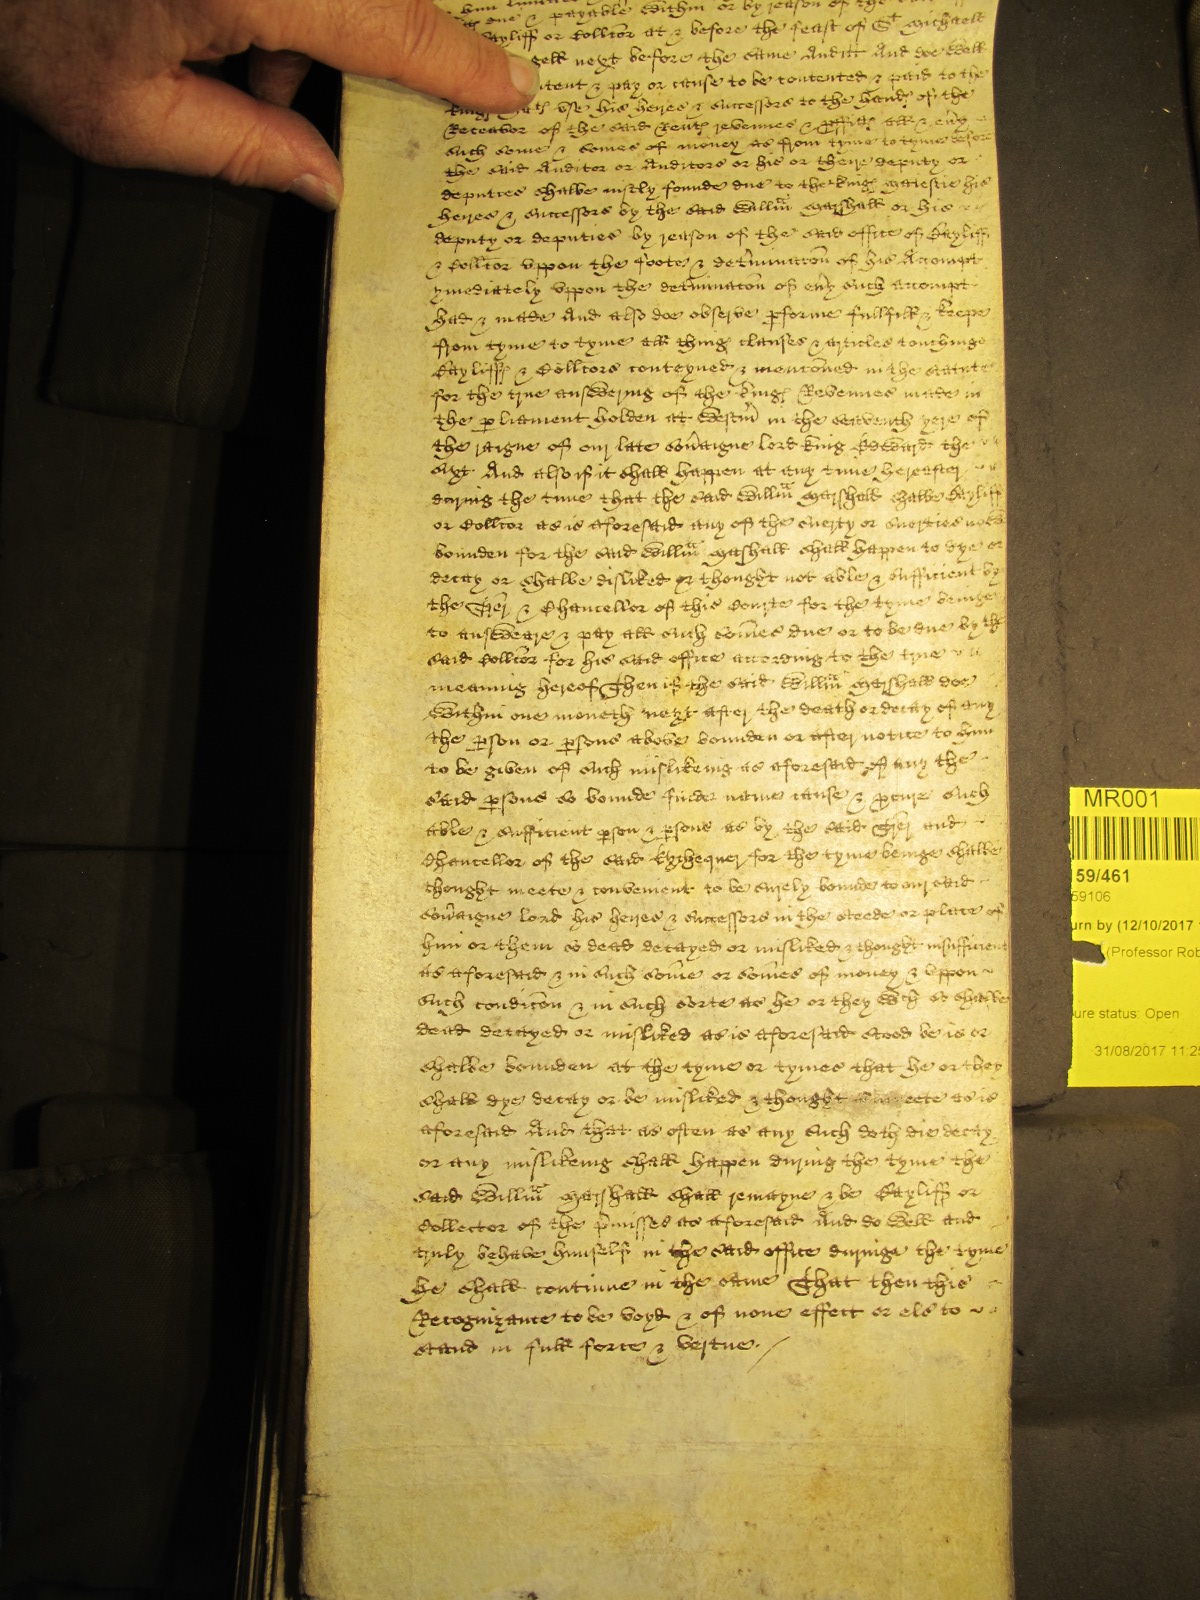 due & payable within or by reason of the
Bayliff or Collcor at & before the feast of St Michaell
gell next before the same Auditt And doe well
ntent & pay or cause to be contented & paid to the
kings vse his heyres & successors to the hands of the
Receavor of the said Rents revennes & proffitts all & eũy
such some & somes of money as from tyme to tyme before
the said Auditor or Auditors or his or theire deputy or
deputies shalbe iustly founde due to the kings maiestie his
heyres & successors by the said Willm̃ Marshall or his
deputy or deputies by reason of the said office of Bayliff
& Collcor vppon the foote & det̃minac̃on of his Accompt
ymediately vppon the det̃minac̃on of eũy such accompt
had & made And also doe observe p̱forme fullfill & keepe
from tyme to tyme all things clauses & articles touchinge
Bayliffs & Collcors conteyned & menc̃oned in the statute
for the true answering of the kings Revennes made in
the p̱liament holden at Westm̃ in the seaventh yere of
the raigne of our late soṽaigne lord king Edward the
sixt And also if it shall happen at any tyme hereafter
during the tyme that the said Willm̃ Marshall shalbe Bayliff
or Collcor as is aforesaid any of the suerty or suerties now
bounden for the said Willm̃ Marshall shall happen to dye or
decay or shalbe disliked or thought not able & sufficient by
the Thrẽr & Chancellor of this Courte for the tyme beinge
to answeare & pay all such som̃es due or to be due by the
said Collcor for his said office according to the true
meaning hereof Then if the said Willm̃ Marshall doe
within one moneth next after the death or decay of any
the p̱son or p̱sons above bounden or after notice to him
to be given of such mislikeing as aforesaid of any the
said p̱sons so bounde finde name cause & p̱cure such
able & sufficient p̱son & p̱sons as by the said Thrẽr and
Chancellor of the said Exchequer for the tyme beinge shalbe
thought meete & convenient to be surely bounde to our said
soṽaigne lord his heyres & successors in the steede or place of
him or them so dead decayed or misliked & thought insufficient
as aforesaid & in such som̃e or som̃es of money & vppon
such condic̃on & in such sorte as he or they wch so shalbe
dead decayed or misliked as is aforesaid stood be is or
shalbe bounden at the tyme or tymes that he or they
shall dye decay or be misliked & thought eete as is
aforesaid And that as often as any such deth die decay
or any mislikeing shall happen during the tyme the
said Willm̃ Marshall shall remayne & be Bayliff or
Collector of the p̃misses as aforesaid And do well and
truly behave himself in the said office duringe the tyme
he shall continue in the same That then this
Recognizance to be voyd & of none effect or els to
stand in full force & vertue.
MR001
59/461
59106
urn by (12/10/2017
(Professor Rob
ure status: Open
31/08/2017 11:25